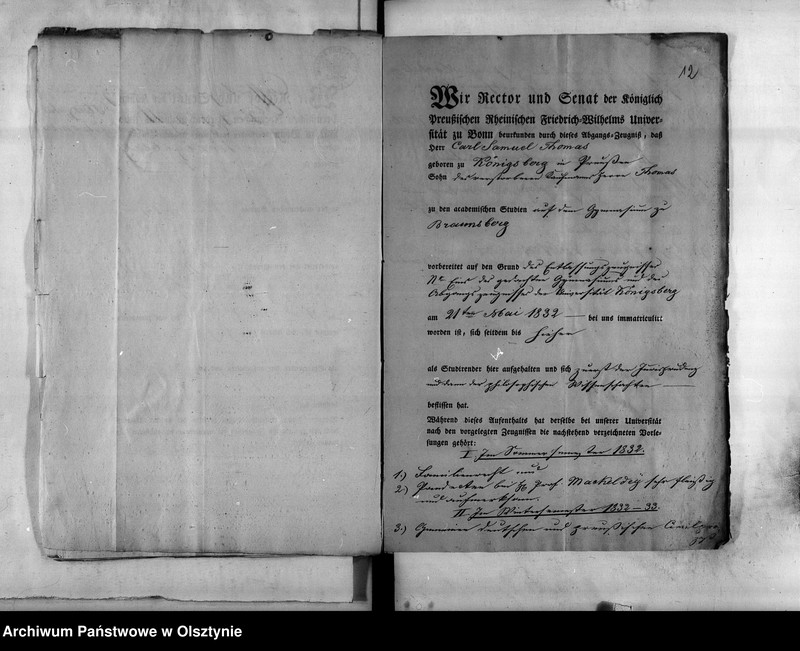 12
Wir Rector und Senat der Königlich
Preußischen Rheinischen Friedrich-Wilhelms Univer-
sität zu Bonn beurkunden durch dieses Abgangs-Zeugniß, daß
Herr Carl Samuel Thomas
geboren zu Königsberg in Preußen
Sohn des verstorbenen Kaufmanns Herrn Thomas
zu den academischen Studien auf dem Gymnasium zu
Braunsberg
vorbereitet auf den Grund des Entlassungszeugnisses
No Eins des gedachten Gymnasiums und des
Abgangszeugnisses der Universität Königsberg
am 21ten Mai 1832 bei uns immatriculirt
worden ist, sich seitdem bis hieher
als Studirender hier aufgehalten und sich zuerst der Jurisprudenz
und dann der philosophischen Wissenschaften
beflissen hat.
Während dieses Aufenthalts hat derselbe bei unserer Universität
nach den vorgelegten Zeugnissen die nachstehend verzeichneten Vorle-
sungen gehört:
I. Im Sommersemester 1832.
1.) Familienrecht und
2.) Pandecten bei H. Prof. Mackeldey sehr fleißig
und aufmerksam.
II. Im Wintersemester 1832-33.
3.) Gemeinen deutschen und preußischen
Archiwum Państwowe w Olsztynie